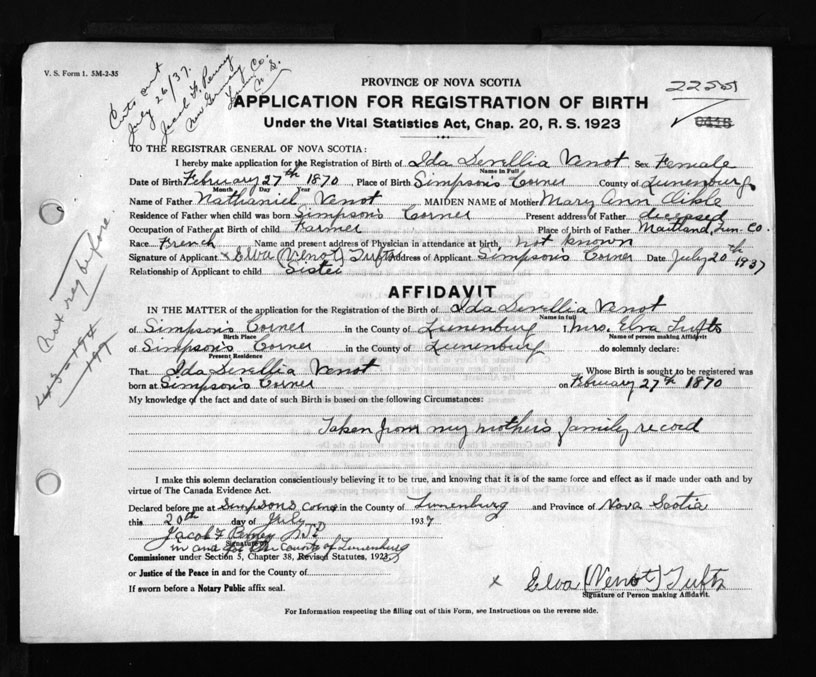 V. S. Form 1. 5M-2-35
Certs out
July 26/37.
Jacob F. Penny
New Germany
Lun. Co.
N. S.
PROVINCE OF NOVA SCOTIA
APPLICATION FOR REGISTRATION OF BIRTH
Under the Vital Statistics Act, Chap. 20, R. S. 1923
TO THE REGISTRAR GENERAL OF NOVA SCOTIA:
I hereby make application for the Registration of Birth of Ida Sevillia Venot Sex Female
Name in Full
Date of Birth February 27th 1870, Place of Birth Simpson's Corner County of Lunenburg
Month Day Year
Name of Father Nathaniel Venot MAIDEN NAME of Mother Mary Ann
Residence of Father when child was born Simpson's Corner Present address of Father deceased
Occupation of Father at Birth of child Farmer Place of birth of Father Maitland, Lun. Co.
Race French Name and present address of Physician in attendance at birth, not known
Signature of Applicant x Elva (Venot) Tufts Address of Applicant Simpson's Corner Date July 20th 1937
Relationship of Applicant to child Sister
AFFIDAVIT
IN THE MATTER of the application for the Registration of the Birth of Ida Sevillia Venot
Name in full
of Simpson's Corner in the County of Lunenburg I, Mrs. Elva Tufts
Birth Place Name of person making Affidavit
of Simpson's Corner in the County of Lunenburg do solemnly declare:
Present Residence
That Ida Sevillia Venot Whose Birth is sought to be registered was
born at Simpson's Corner on February 27th 1870
My knowledge of the fact and date of such Birth is based on the following Circumstances:
Taken from my mother's family record
I make this solemn declaration conscientiously believing it to be true, and knowing that it is of the same force and effect as if made under oath and by
virtue of The Canada Evidence Act.
Declared before me at Simpson's Corner in the County of Lunenburg and Province of Nova Scotia
this 20th day of July 1937
Jacob F Penny J.P.
Signature of
in and for the County of Lunenburg
Commissioner under Section 5, Chapter 38, Revised Statutes, 1923,
or Justice of the Peace in and for the County of
If sworn before a Notary Public affix seal.
x Elva (Venot) Tufts
Signature of Person making Affidavit.
For Information respecting the filling out of this Form, see Instructions on the reverse side.
Not reg before.